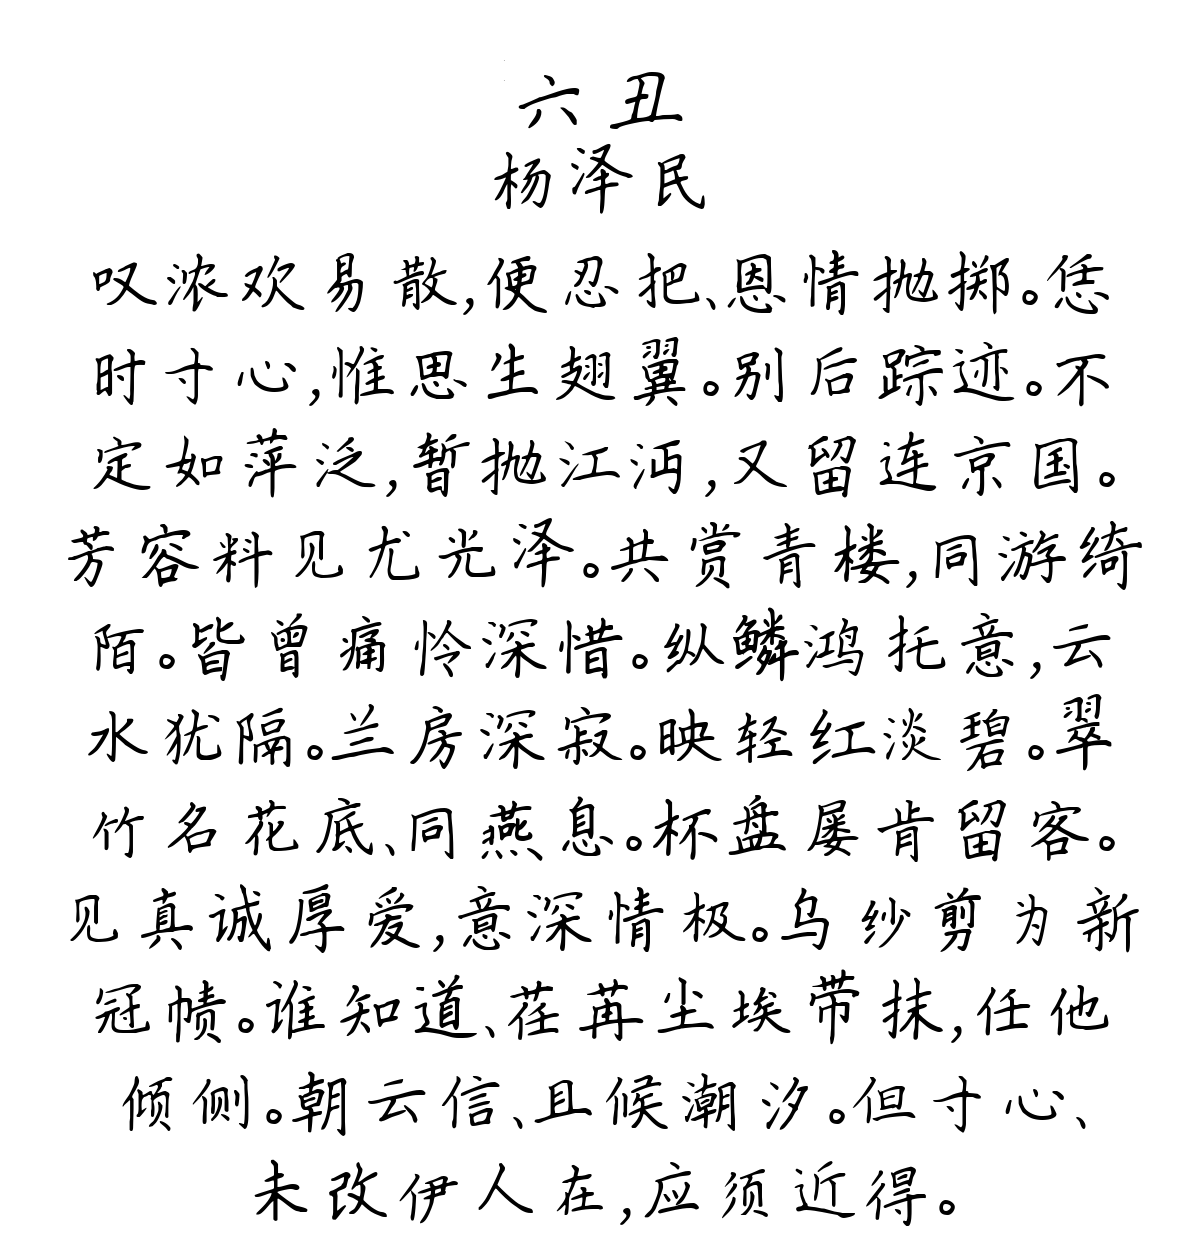 六丑
杨泽民
叹浓欢易散,便忍把、恩情抛掷。恁
时寸心,惟思生翅翼。别后踪迹。不
定如萍泛,暂抛江沔,又留连京国。
芳容料见尤光泽。共赏青楼,同游绮
陌。皆曾痛怜深惜。纵鳞鸿托意,云
水犹隔。兰房深寂。映轻红淡碧。翠
竹名花底、同燕息。杯盘屡肯留客。
见真诚厚爱,意深情极。乌纱剪为新
冠帻。谁知道、荏苒尘埃带抹,任他
倾侧。朝云信、且候潮汐。但寸心、
未改伊人在,应须近得。